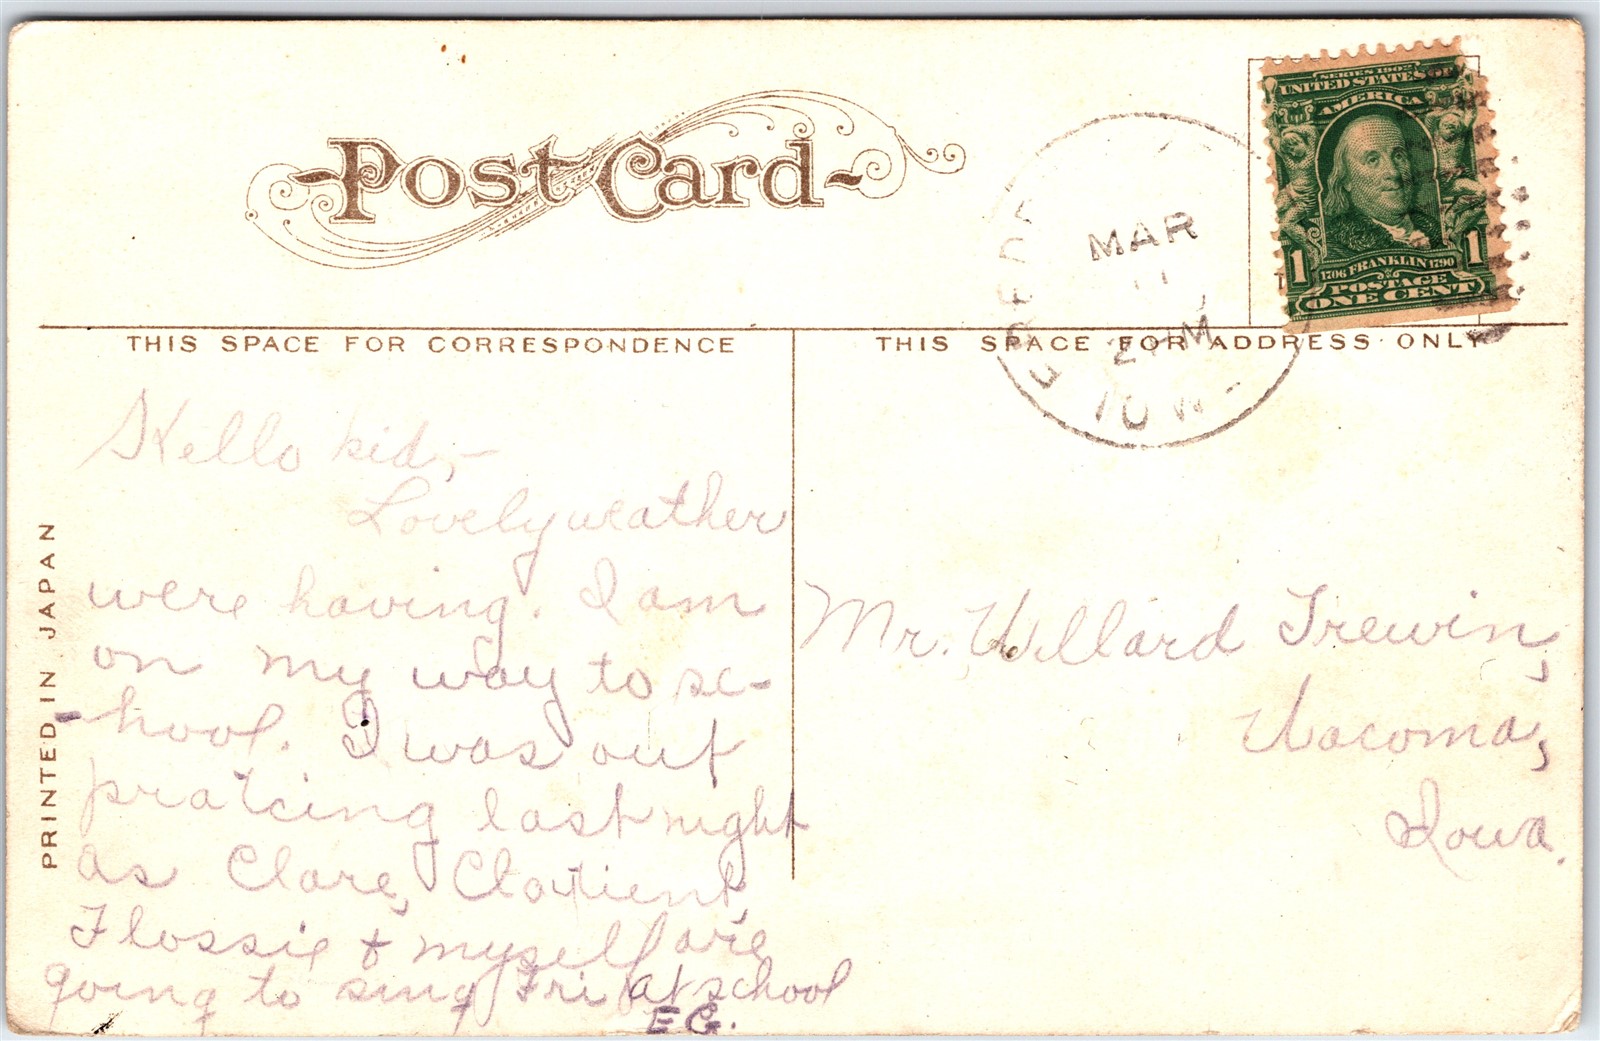 Post Card
SERIES 1902
UNITED STATES OF
AMERICA
1 1
1706 FRANKLIN 1790
POSTAGE
ONE CENT
MAR
11
IOW
THIS SPACE FOR CORRESPONDENCE
THIS SPACE FOR ADDRESS ONLY
PRINTED IN JAPAN
Hello kid,-
Lovely weather
were having. I am
on my way to sc-
-hool. I was out
pratcing last night
as Clare,
Flossie & myself are
going to sing Fri at school
E G.
Mr. Willard Trewin,
Wacoma,
Iowa.